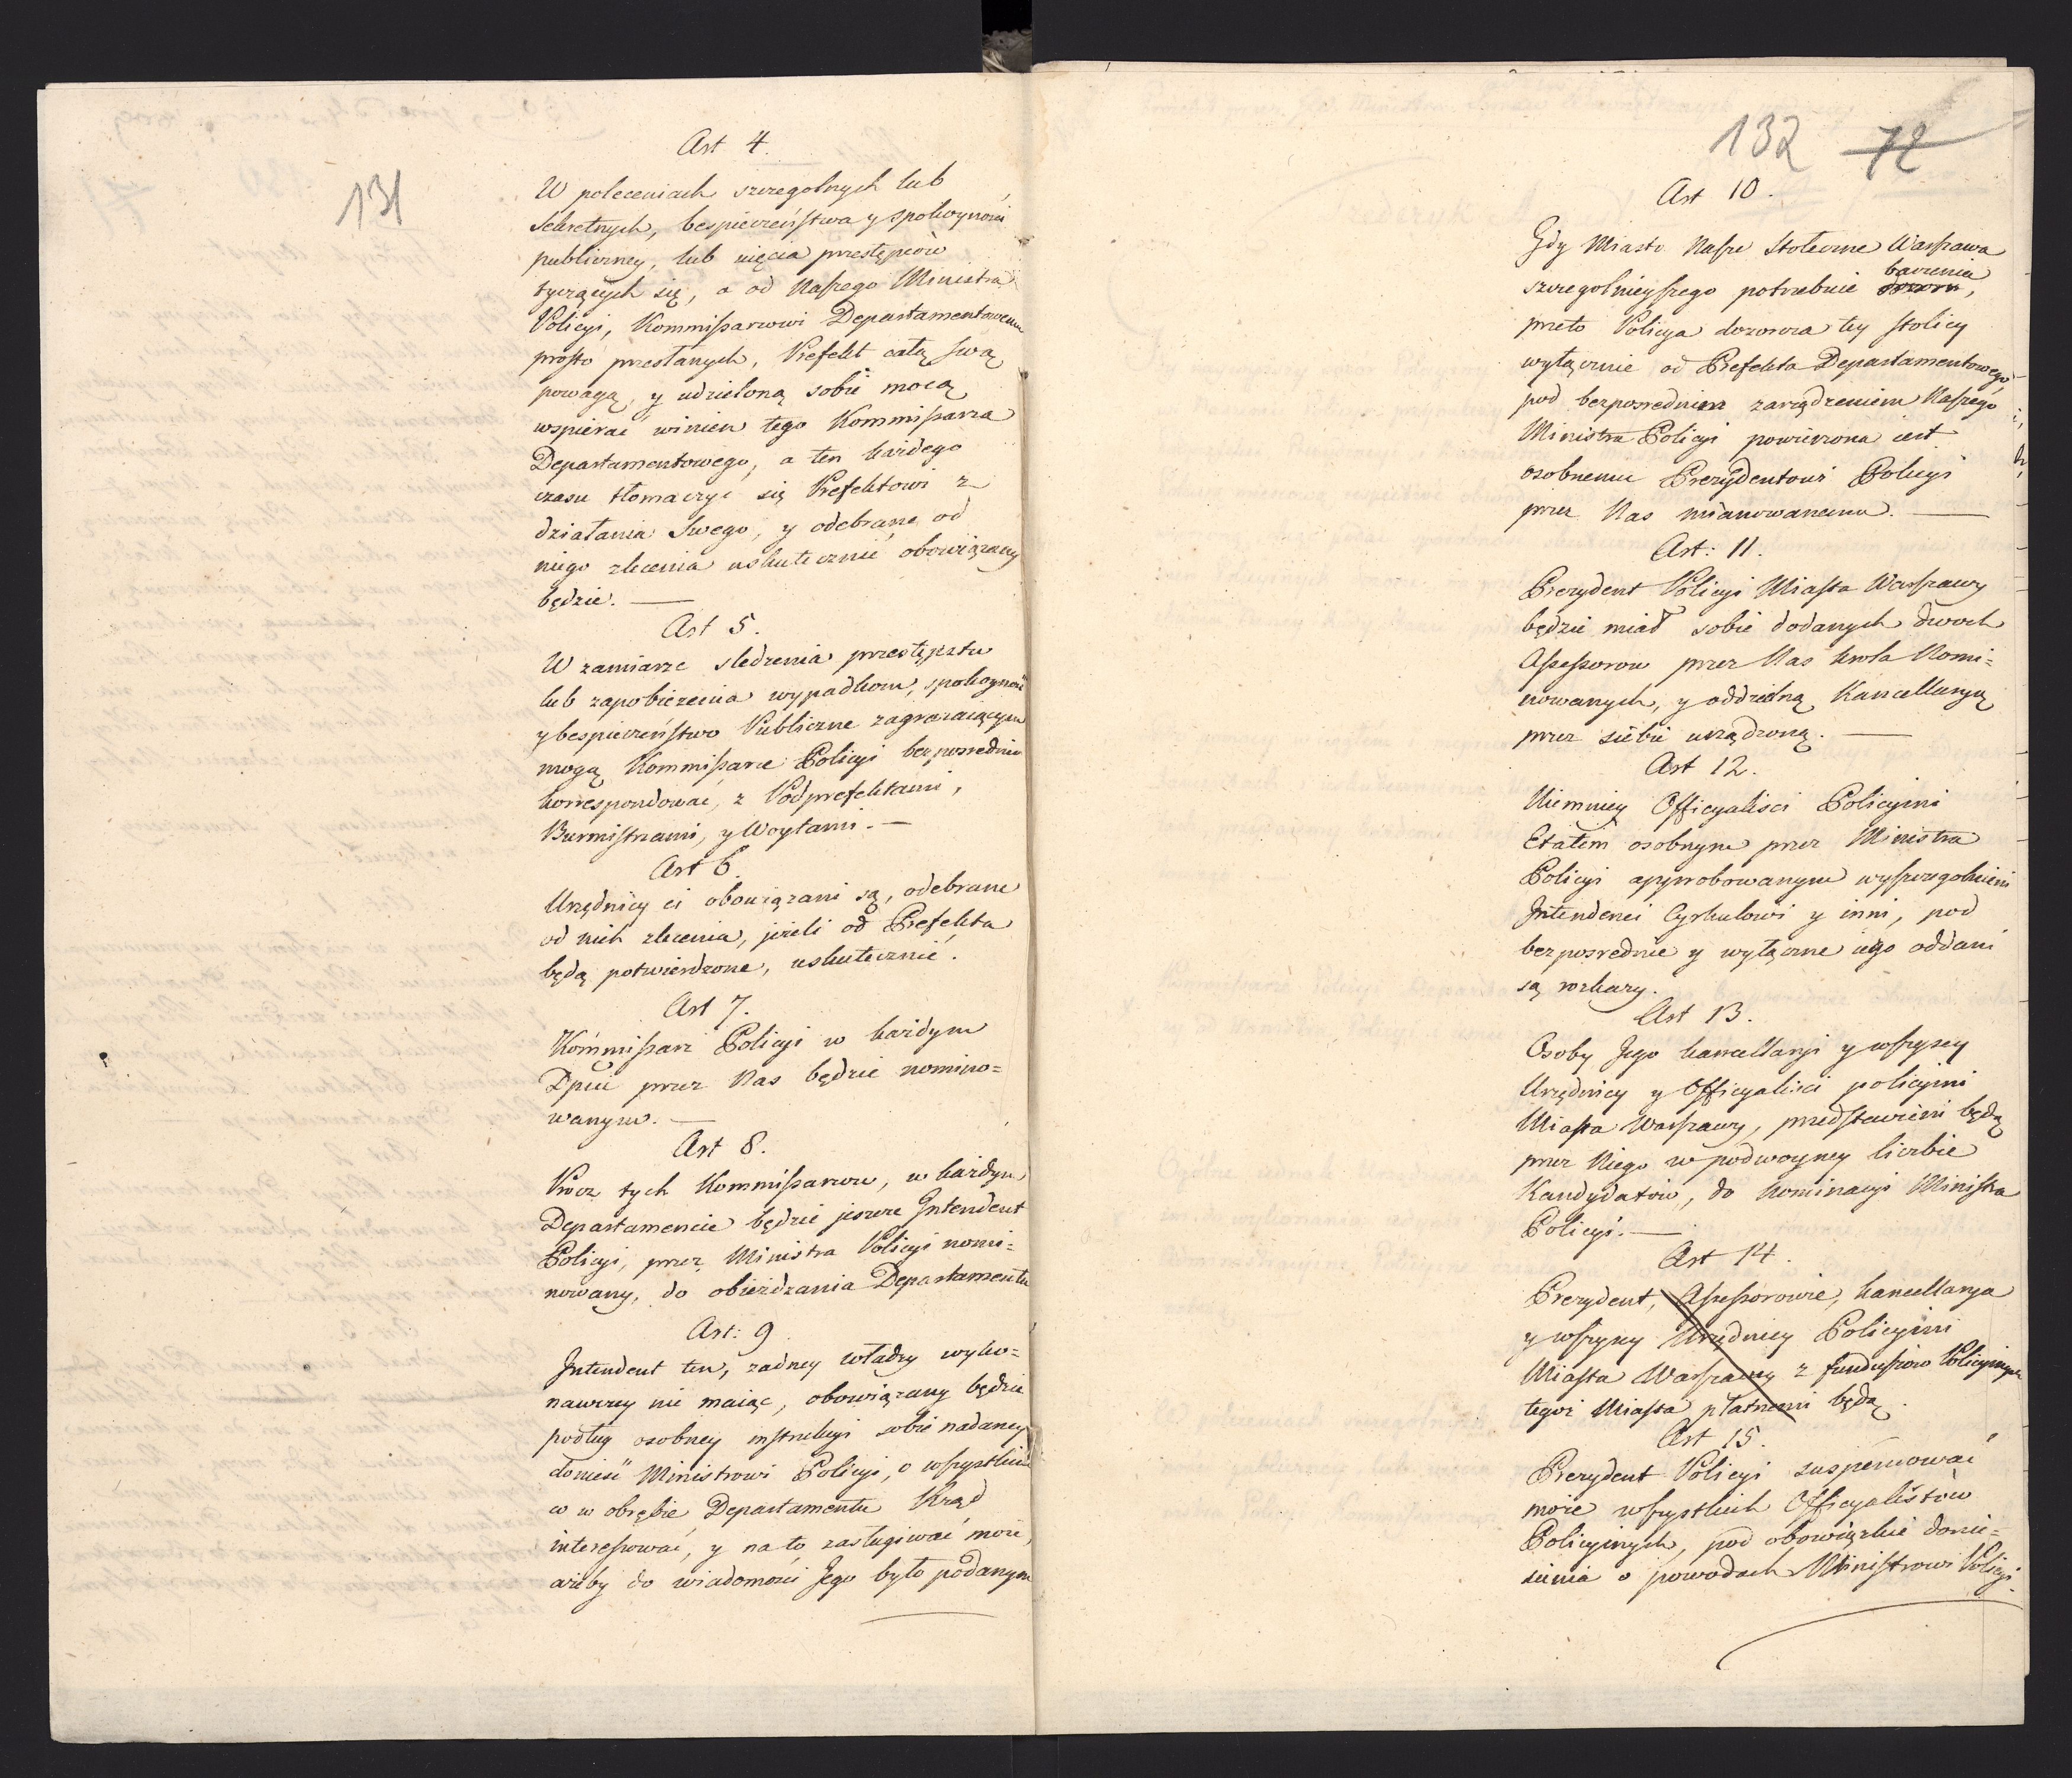 131
Art 4.
W poleceniach szczegolnych lub
Sekretnych, bespieczeństwa y spokoyności
publiczney, lub uięcia przestępców
tyczących się, a od Naszego Ministra
Policyi, Kommissarzowi Departamentowemu
prosto przesłanych, Prefekt całą swą
powagą, y udzieloną sobie mocą
wspierać winien tego Kommissarza
Departamentowego, a ten każdego
czasu tłomaczyć się Prefektowi z
działania Swego, y odebrane od
niego zlecenia uskutecznić obowiązany
będzie. —
Art 5.
W zamiarze sledzenia przestępstw
lub zapobieżenia wypadkom, spokoyność
y bespieczeństwo Publiczne zagrażaiącym
mogą Kommissarze Policyi bezposrednio
korrespondować, z Podprefektami,
Burmistrzami, y Woytami. —
Art 6.
Urzędnicy ci obowiązani są, odebrane
od nich zlecenia, jeżeli od Prefekta
będą potwierdzone, uskutecznić.
Art 7.
Kommissarz Policyi w każdym
Dpcie przez Nas będzie nomino=
wanym. —
Art 8.
Prócz tych Kommissarzow, w każdym
Departamencie będzie jeszcze Intendent
Policyi, przez Ministra Policyi nomi=
nowany, do obieżdzania Departamentu
Art: 9.
Intendent ten, zadney władzy wyko=
nawczey nie maiąc, obowiązany będzie
podług osobney instrukcyi sobie nadaney
donieść Ministrowi Policyi, o wszystkiem
co w obrębie Departamentu Rząd
interessować, y na to zasługiwać może,
ażeby do wiadomości Jego było podanym
132 72
Art 10.
Gdy Miasto Nasze Stołeczne Warszawa
baczenia
szczegolnieyszego potrzebuie dozoru,
przeto Policya dozorcza tey stolicy
wyłącznie od Prefekta Departamentowego,
pod bezposredniem zarządzeniem Naszego
Ministra Policyi powierzona iest
osobnemu Prezydentowi Policyi
przez Nas mianowanemu. —
Art: 11.
Prezydent Policyi Miasta Warszawy
będzie miał sobie dodanych dwoch
Assessorow przez Nas Krola Nomi=
nowanych, y oddzielną Kancellaryą
przez siebie urządzoną. —
Art 12.
Niemniey Officyalisci Policyini
Etatem osobnym przez Ministra
Policyi approbowanym wyszczegolnieni
Intendenci Cyrkulowi y inni, pod
bezposrednie y wyłączne iego oddani
są rozkazy.
Art 13.
Osoby Jego kancellaryi y wszyscy
Urzędnicy y Officyalisci policyini
Miasta Warszawy, przedstawieni będą
przez Niego w podwoyney liczbie
Kandydatów, do Nominacyi Ministra
Policyi. —
Art 14.
Prezydent, Assessorowie, kancellarya
y wszyscy Urzędnicy Policyini
Miasta Warszawy z funduszow Policyinych
tegoż Miasta płatnemi będą.
Art 15.
Prezydent Policyi suspensować
może wszystkich Officyalistow
Policyinych, pod obowiązkie donie=
sienia o powodach Ministrowi Policyi.